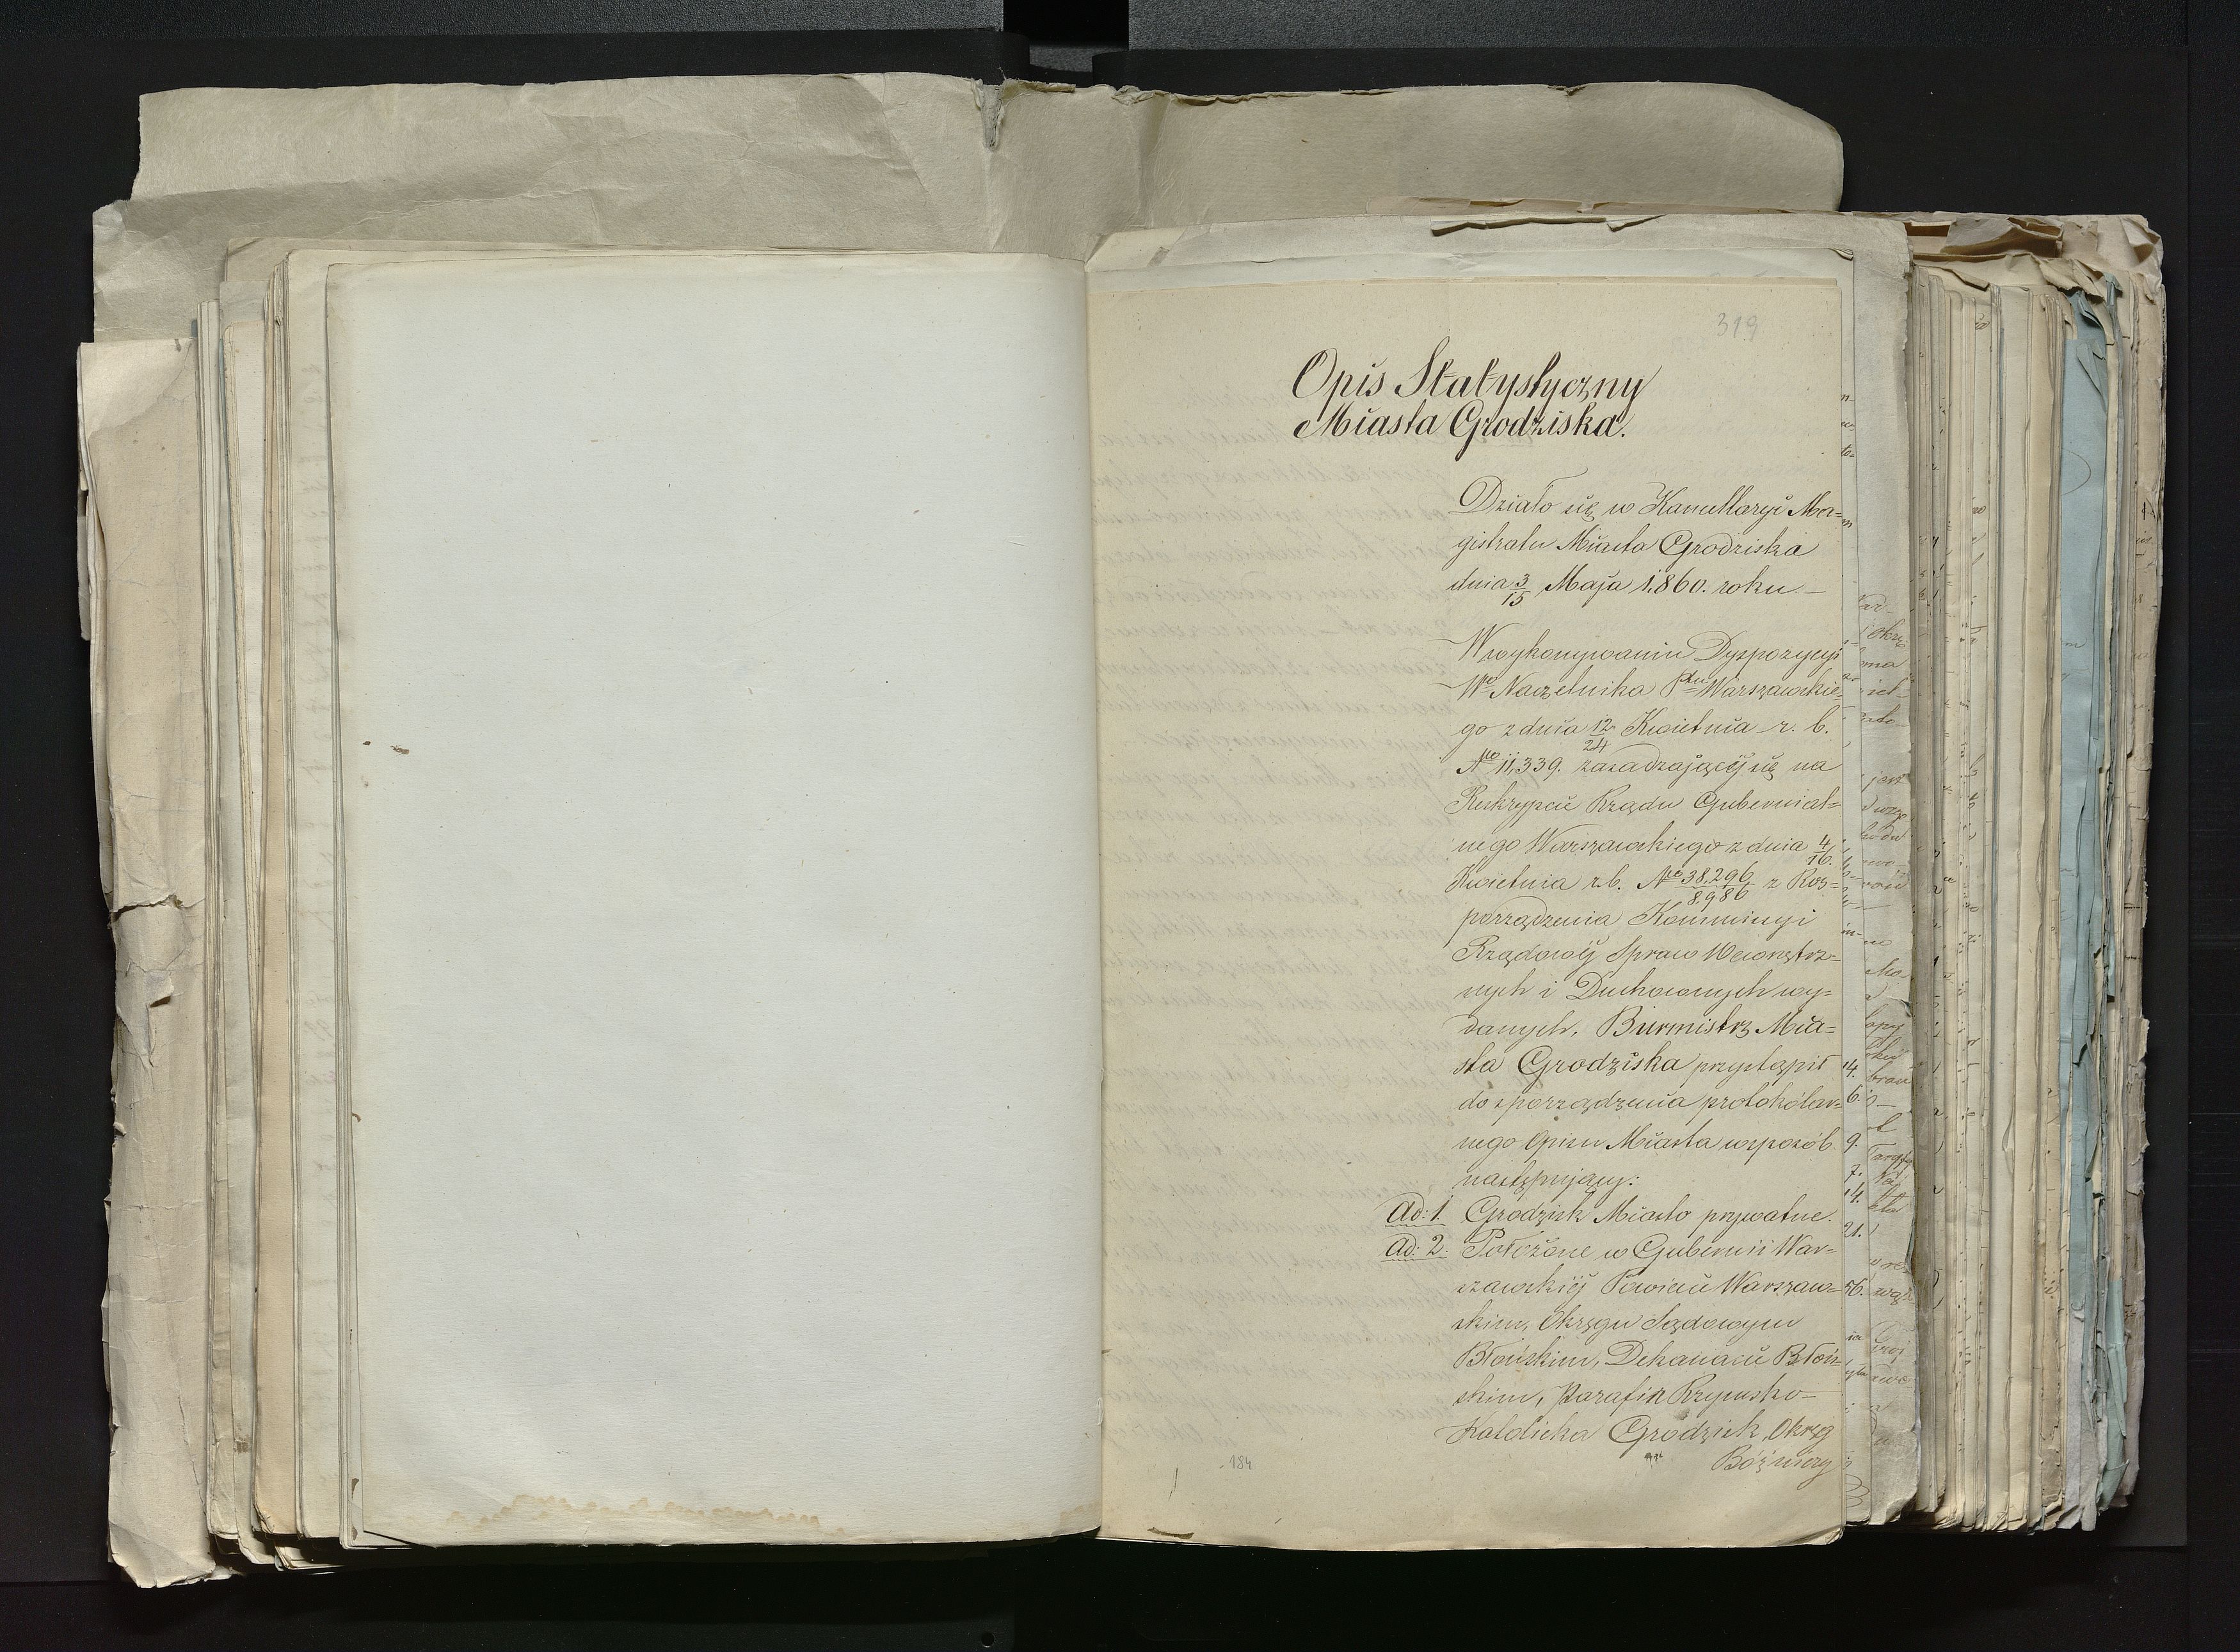 319
Opis Statystyczny
Miasta Grodziska.
Działo się w Kancellaryi Ma=
gistratu Miasta Grodziska
dnia 3/15 Maja 1860. roku. —
W wykonywaniu Dyspozycyi
Wo Naczelnika Ptu Warszawskie=
go z dnia 12/24 Kwietnia r. b.
No 11,339. zasadzającéj się na
Reskrypcie Rządu Gubernial=
nego Warszawskiego z dnia 4/16.
Kwietnia r.b. No 38,296/8,986 z Roz=
porządzenia Kommissyi
Rządowéj Spraw Wewnętrz=
nych i Duchownych wy=
danych, Burmistrz Mia=
sta Grodziska przystąpił
do sporządzenia protokólar=
nego Opisu Miasta w sposób
następujący:
Ad: 1. Grodzisk Miasto prywatne.
Ad: 2. Położone w Gubernii War=
szawskiéj Powiecie Warszaw=
skim, Okręgu Sądowym
Błońskim, Dekanacie Błoń=
skim, Parafia Rzymsko—
Katolicka Grodzisk, Okręg
Bóźniczy
184